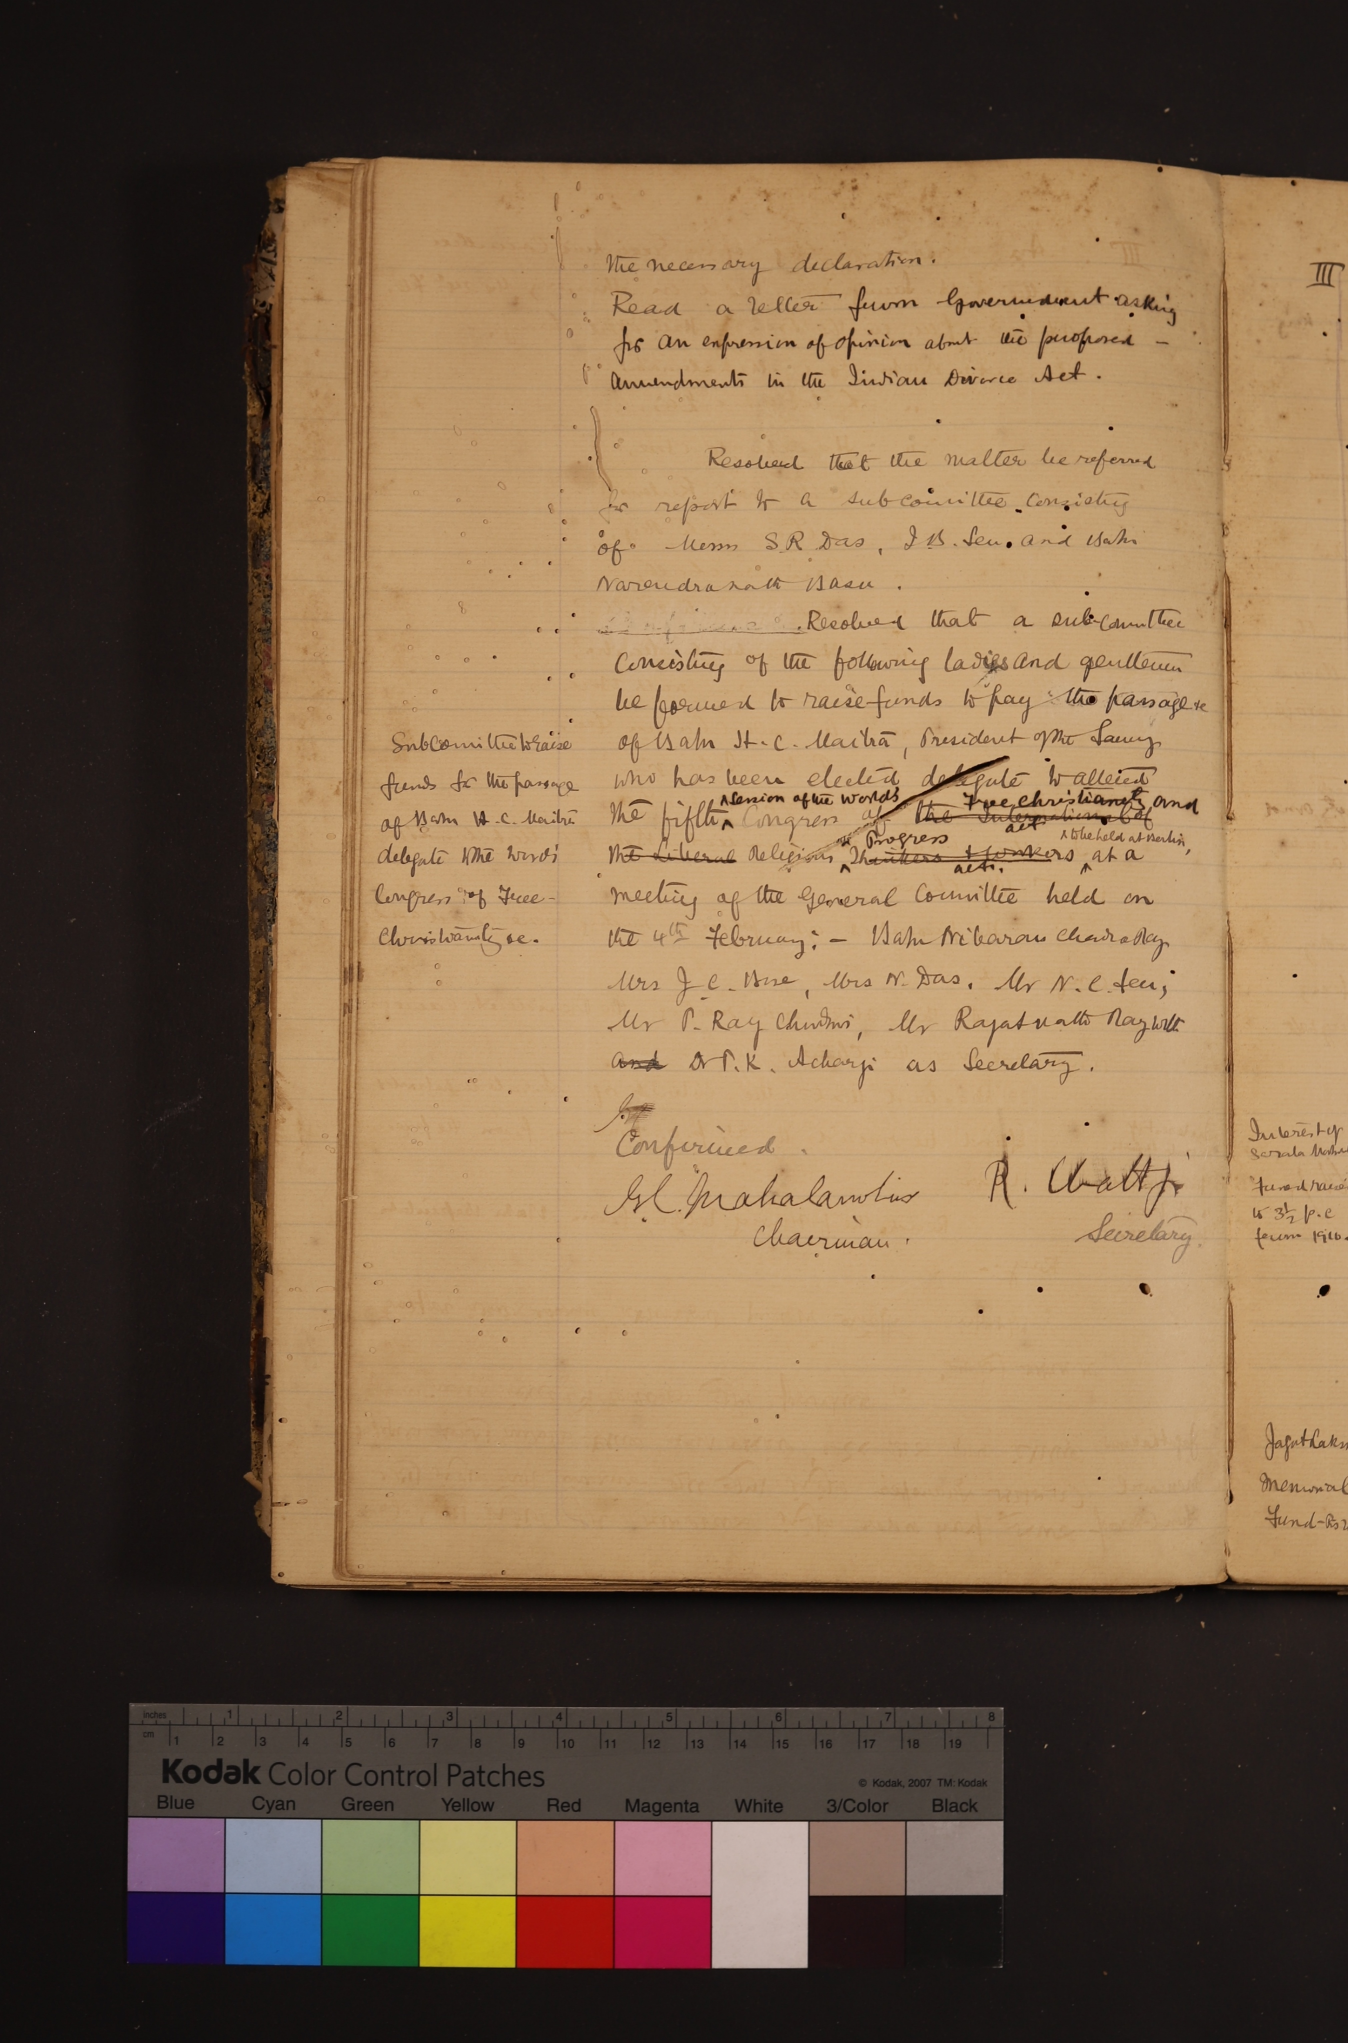 the necessary declaration.
Read a letter from Government asking
for an expression of opinion about the proposed –
amendments in the Indian Divorce Act.
Resolved that the matter be referred
for report to a subcommittee consisting
of Messrs S.R Das, I.B. Sen. and Babu
Narendranath Basu.
Resolved that a sub-committee
consisting of the following ladies and gentlemen
be formed to raise funds to pay the passage &c
of Babu H. C. Maitra, President of the Samaj
who has been elected delegate to attend
Session of the World's Free Christianity and
the fifth Congress of the International of
Progress to be held at Berlin,
the Liberal Religious Thinkers & workers at a
meeting of the General Committee held on
the 4th February: – Babu Nibaran Chandra Ray
Mrs J. C. Bose, Mrs N. Das. Mr N. C. Sen,
Mr P. Ray Chudhri, Mr Rajatnath Ray with
and Dr P. K. Acharji as Secretary.
Confirmed.
G.C. Mahalanobis
Chairman.
R. Chatterji
Secretary.
Subcommittee to raise
funds for the passage
of Babu H. C. Maitra
delegate to the World's
Congress of Free-
Christianity &c.
III
Interest of
Sarala
Fund raised
to 3½ p.c
from 1910
Memorial
Fund-Rs
inches 1 2 3 4 5 6 7 8
cm 1 2 3 4 5 6 7 8 9 10 11 12 13 14 15 16 17 18 19
Kodak Color Control Patches
© Kodak, 2007 TM: Kodak
Blue Cyan Green Yellow Red Magenta White 3/Color Black